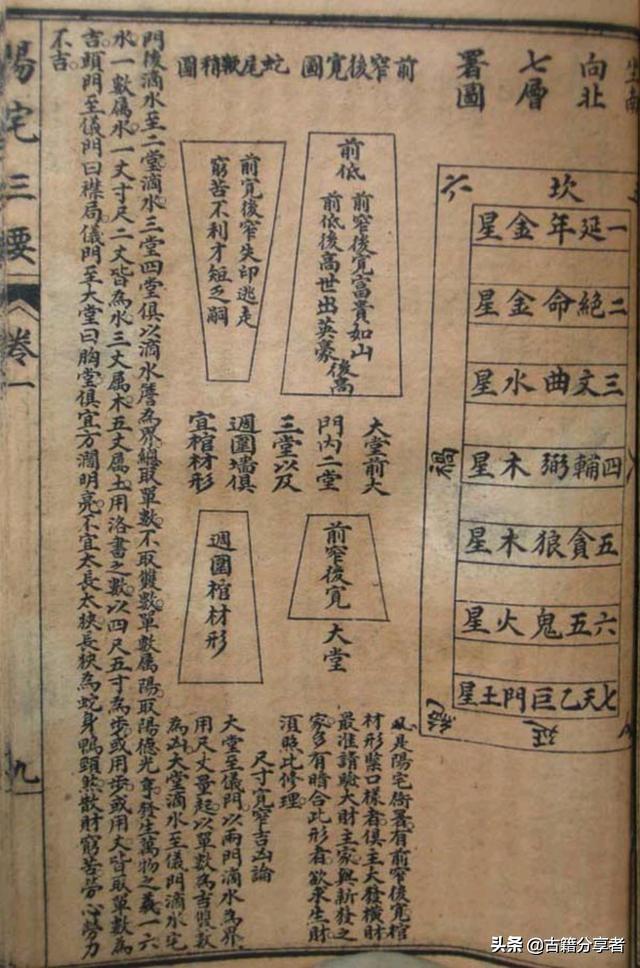 向北
七層
署圖
坎
六
一延年金星
二絶命金星
三文曲水星
四輔弼木星
五貪狼木星
六五鬼火星
七天乙巨門土星
禍
絶
延
前窄後寬圖
蛇尾鞭稍圖
前低
前窄後寬富貴如山
前低後高世出英豪
後高
前寬後窄失印逃走
窮苦不利才短乏嗣
大堂前大
門内二堂
三堂以及
週圍墻俱
宜棺材形
前窄後寬
大堂
週圍棺材形
凡是陽宅衙署有前窄後寬棺
材形禁口樣者俱主大發橫財
最准請驗大財主家與新發之
家多有暗合此形者欲求生財
須照此修理
尺寸寬窄吉凶論
大堂至儀門以兩門滴水為界
用尺丈量起以單數為吉雙數
為凶大堂滴水至儀門滴水宅
門後滴水至二堂滴水三堂四堂俱以滴水簷為界總取單數不取雙數單數屬陽取陽德光亨發生萬物之義一六
水一數屬水一丈寸尺二丈皆為水三丈屬木五丈屬土用洛書之數以四尺五寸為步或用步或用丈皆取單數為
吉頭門至儀門曰襟局儀門至大堂曰胸堂俱宜方濶明亮不宜太長太狹長狹為蛇身鴨頸煞散財窮苦勞心勞力
不吉
陽宅三要
卷一
九
头条 @古籍分享者